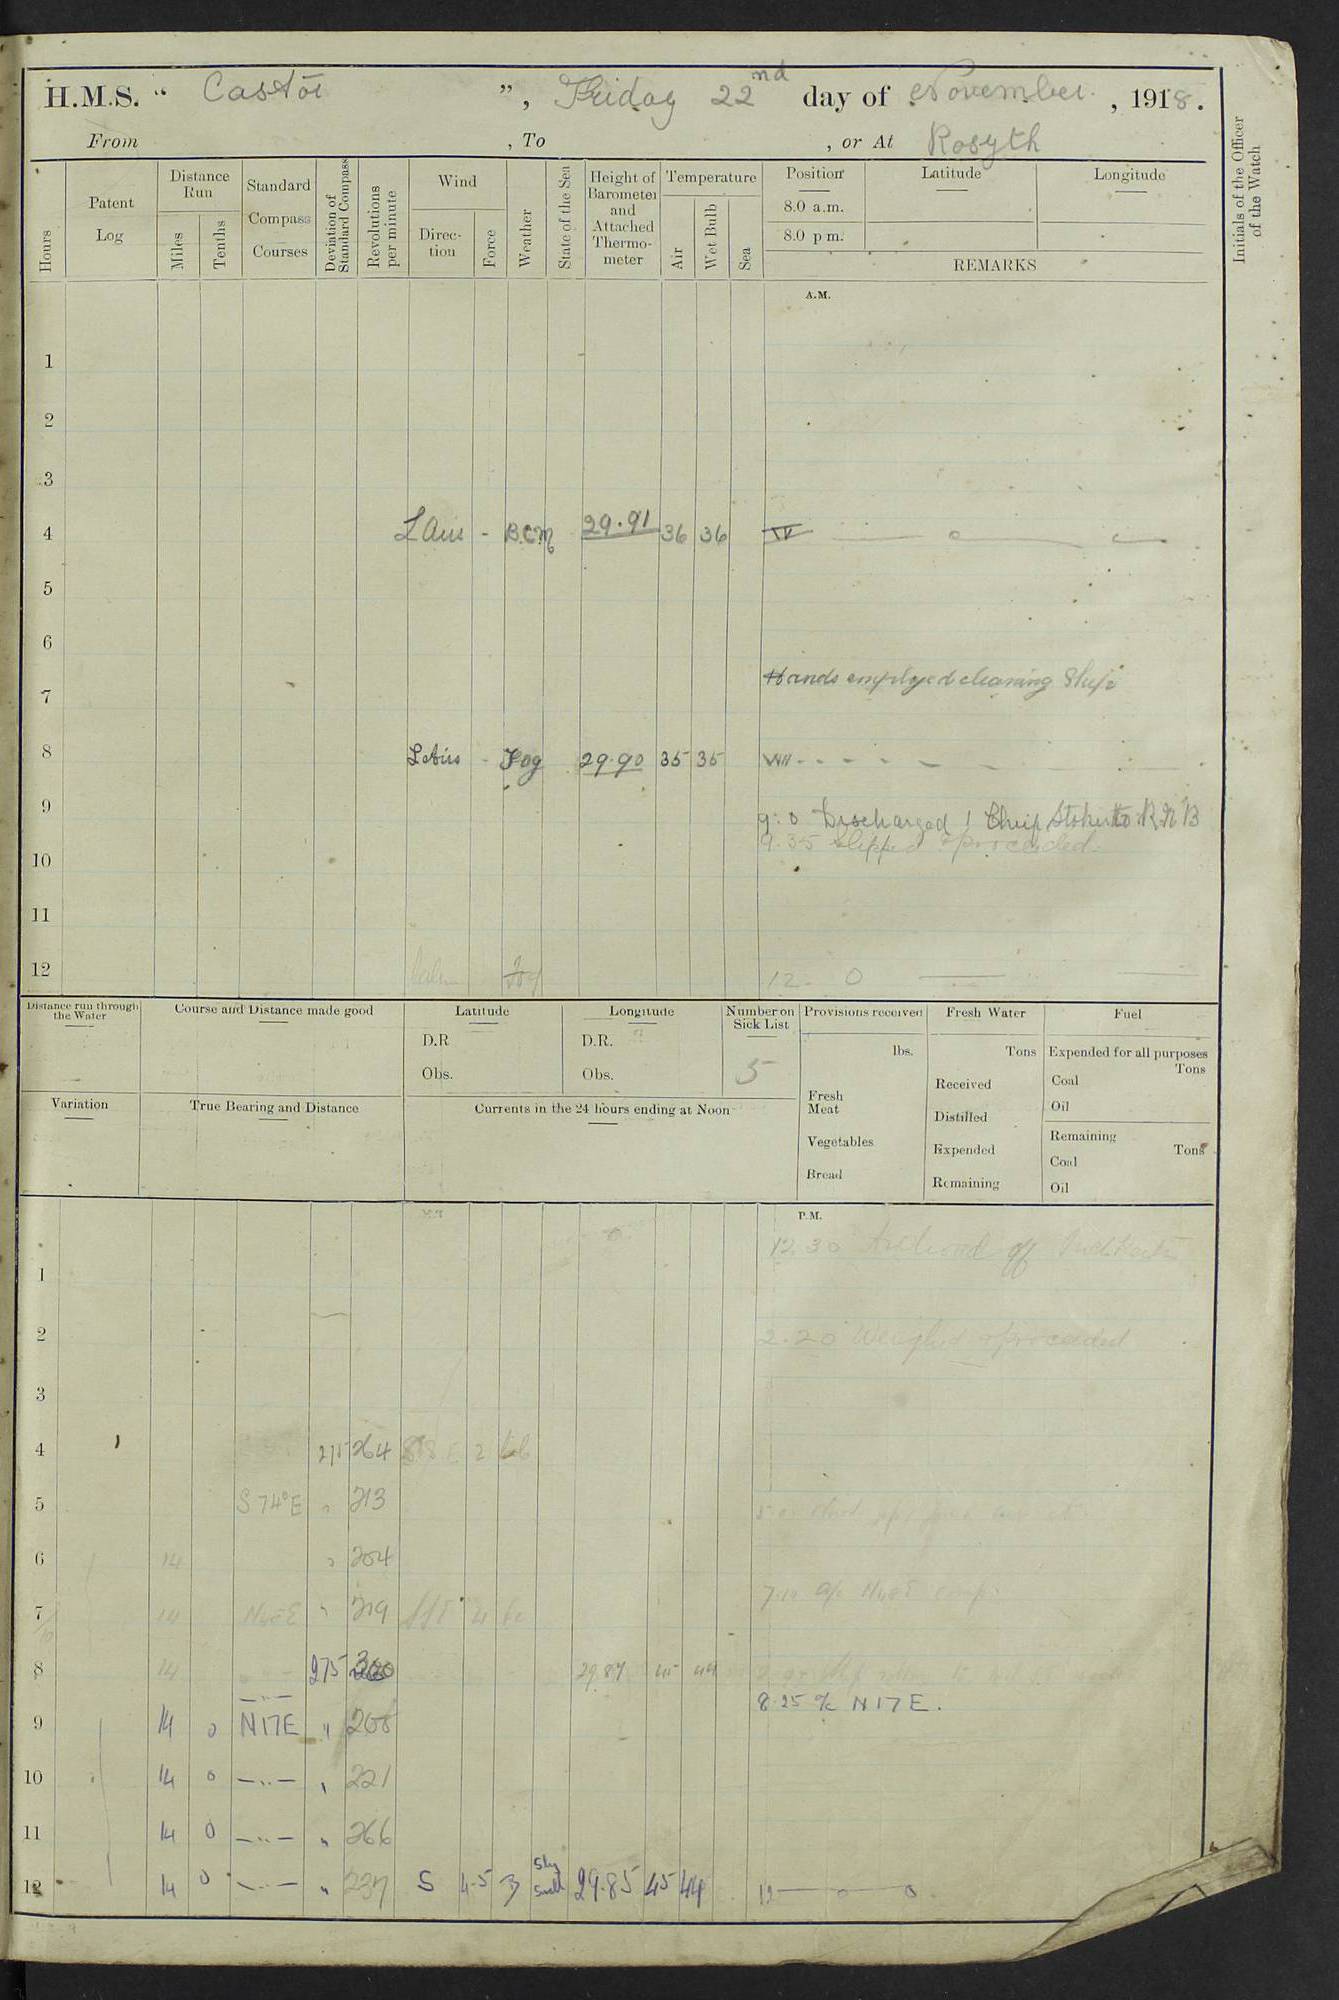 H.M.S. " Castor ", Friday 22nd day of November, 1918.
From , To , or At Rosyth
Hours
Patent Log
Distance Run
Miles
Tenths
Standard Compass Courses
Deviation of Standard Compass
Revolutions per minute
Wind
Direction
Force
Weather
State of the Sea
Height of Barometer and Attached Thermometer
Temperature
Air
Wet Bulb
Sea
Position
8.0 a.m.
8.0 p m.
Latitude
Longitude
REMARKS
Initials of the Officer of the Watch
A.M.
1
2
3
4 L Airs - B.C.M 29.91 36 36 IV
5
6
Hands employed cleaning Ship
7
8 Lt Airs - Fog 29.90 35 35 VIII
9 9:0 Discharged 1 Chief Stoker to R.N.B
9.35 Slipped & proceeded.
10
11
12 Calm Fog 12 0
Distance run through the Water
Course and Distance made good
Latitude
D.R
Obs.
Longitude
D.R.
Obs.
Number on Sick List
5
Provisions received
lbs.
Fresh Meat
Vegetables
Bread
Fresh Water
Tons
Received
Distilled
Expended
Remaining
Fuel
Expended for all purposes
Tons
Coal
Oil
Remaining
Tons
Coal
Oil
Variation
True Bearing and Distance
Currents in the 24 hours ending at Noon
P.M.
12.30 Anchored off Inchkeith
1
2 2.20 Weighed & proceeded
3
4 275 264 2
5 S 74° E " 213
6 14 " 204
7.10 a/c N40E comp.
7 14 N40E " 219 SSE 4 bc
8 14 275 29.87 45 44
8.25 a/c N 17 E.
9 14 0 N17E " 208
10 14 0 —..— " 221
11 14 0 —..— " 266
12 14 0 —..— " 237 S 4.5 Sly Swell 29.85 45 44 12